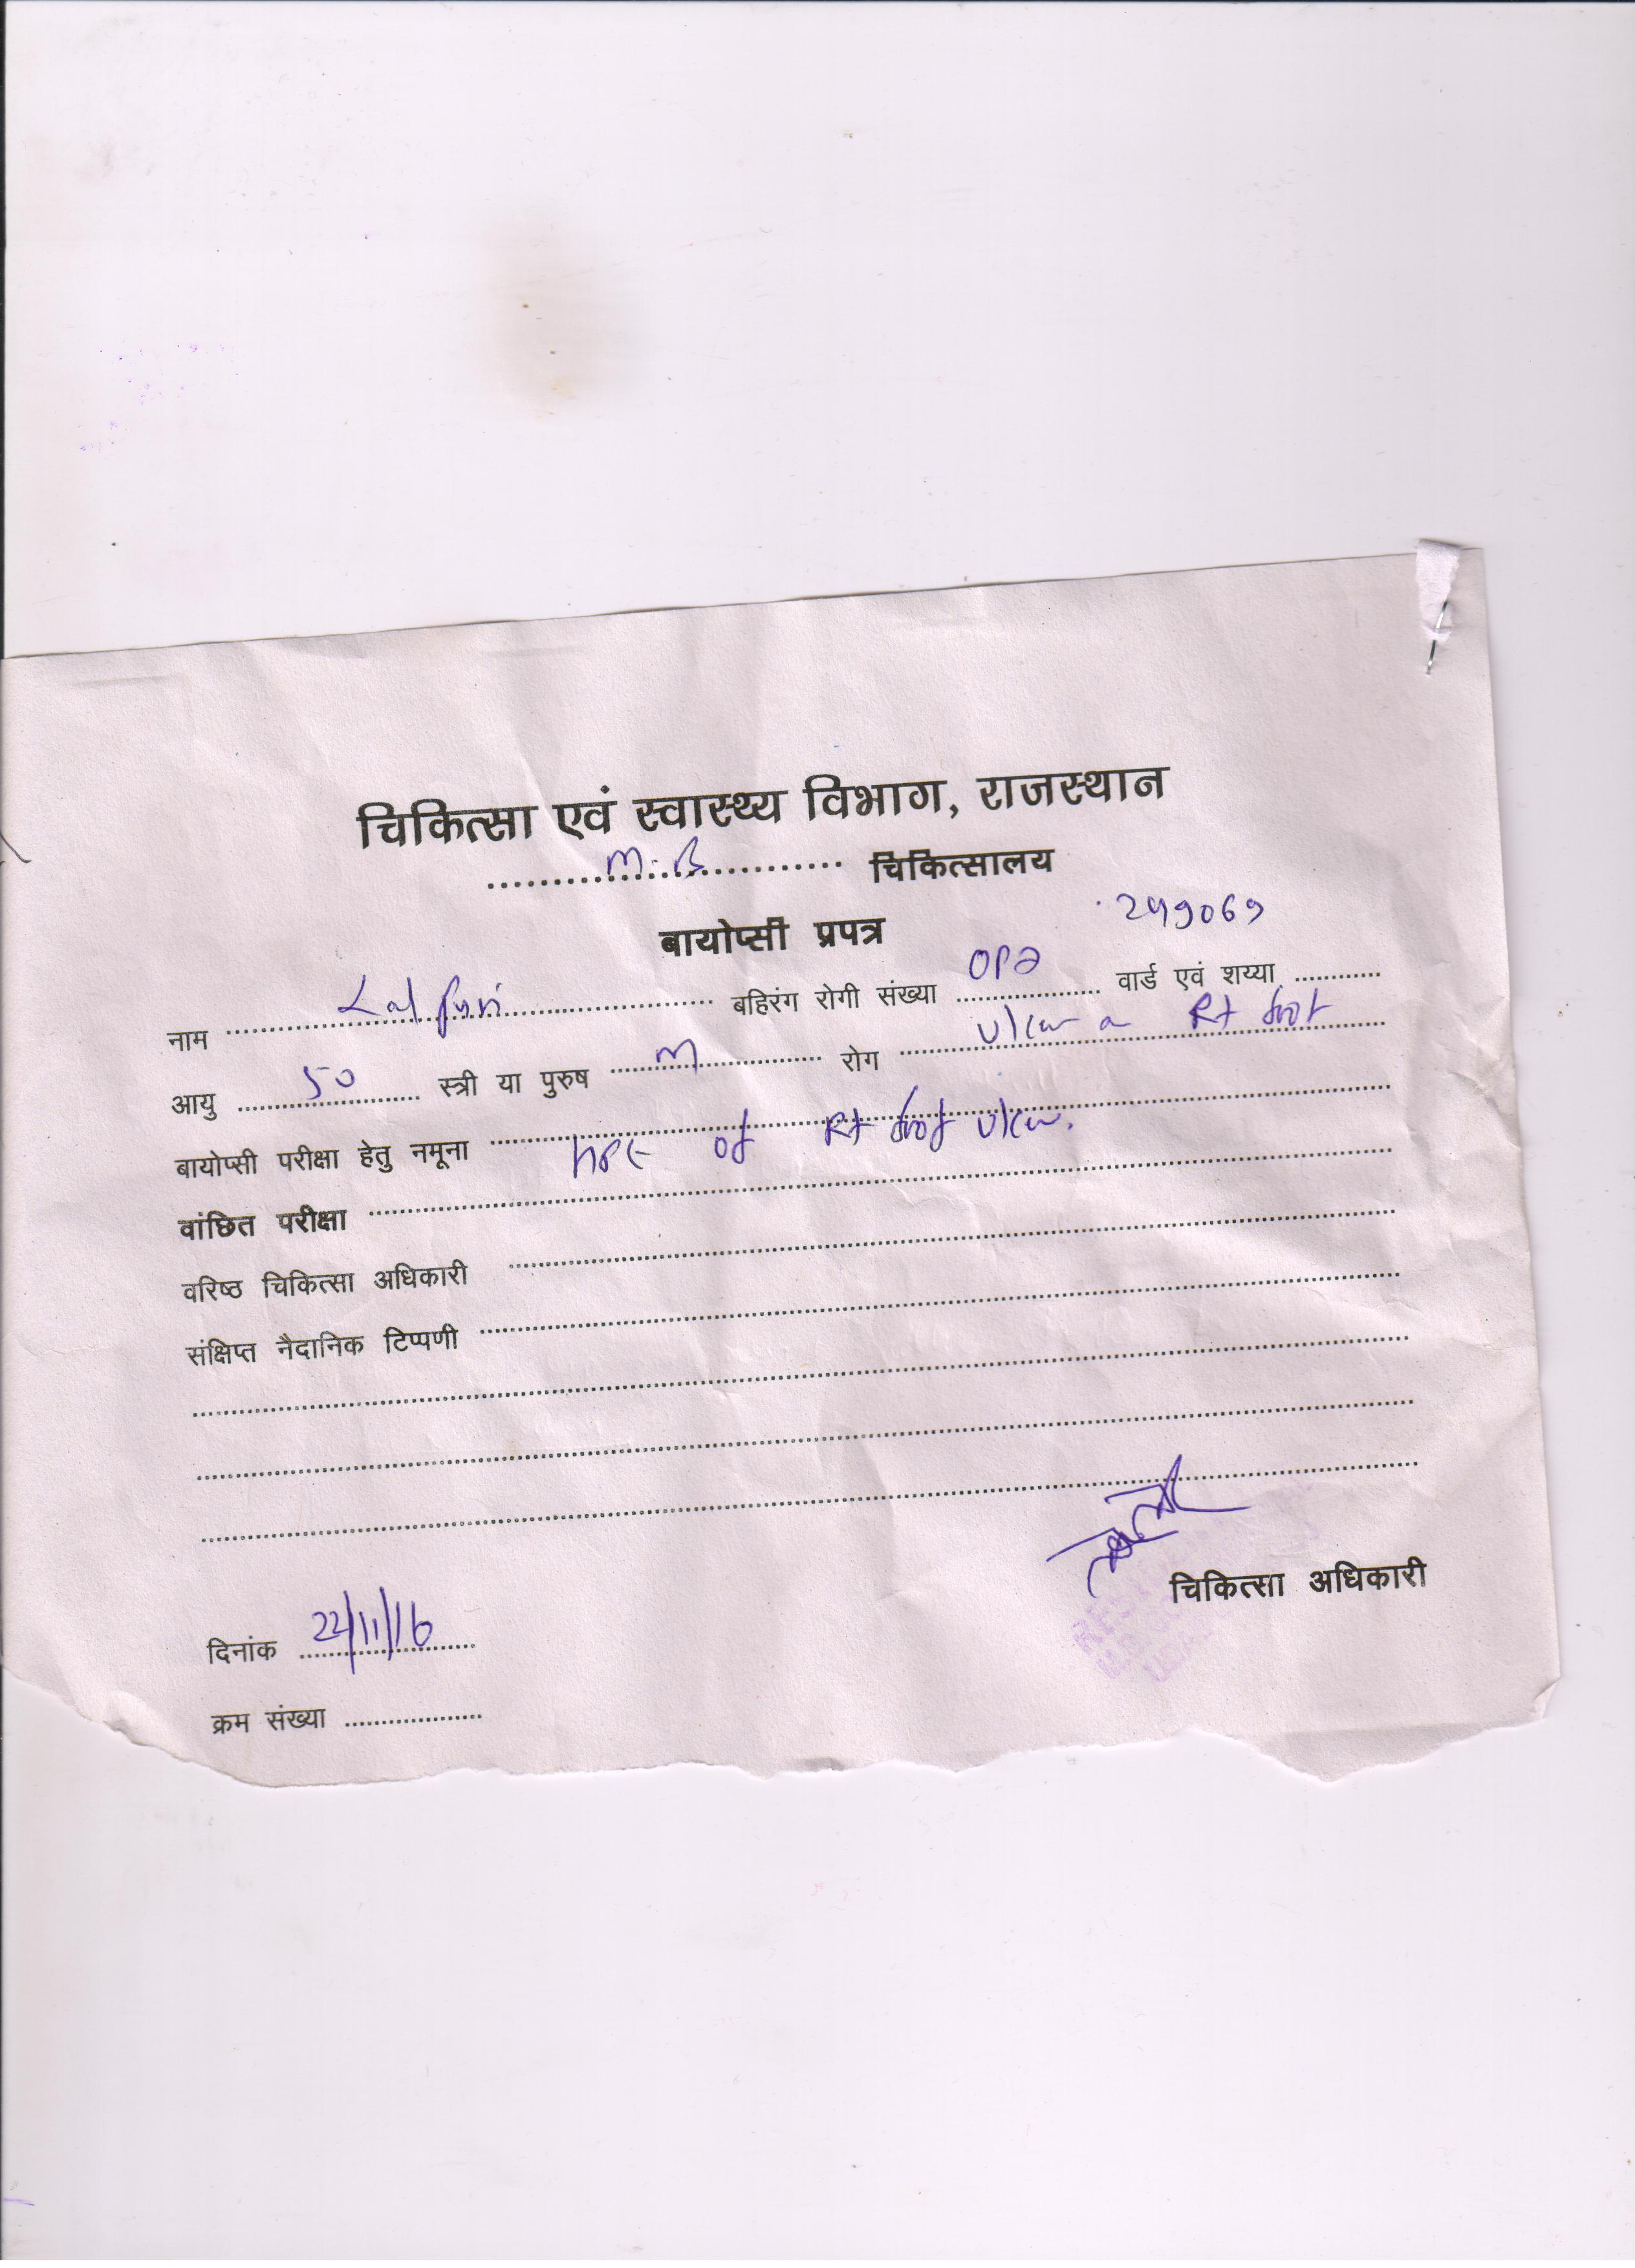 चिकित्सा एवं स्वास्थ्य विभाग, राजस्थान
M.B. चिकित्सालय
बायोप्सी प्रपत्र
नाम Lal Puri बहिरंग रोगी संख्या OPD 299069 वार्ड एवं शय्या
आयु 50 स्त्री या पुरुष M रोग Ulcer Rt foot
बायोप्सी परीक्षा हेतु नमूना HPE of Rt foot Ulcer.
वांछित परीक्षा
वरिष्ठ चिकित्सा अधिकारी
संक्षिप्त नैदानिक टिप्पणी
चिकित्सा अधिकारी
दिनांक 22/11/16
क्रम संख्या